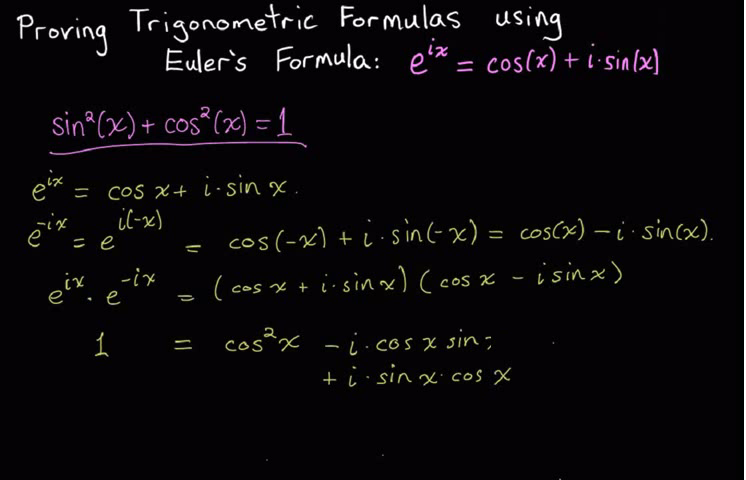 Proving Trigonometric Formulas using
Euler's Formula: e^{ix} = cos(x) + i·sin(x)
sin²(x) + cos²(x) = 1
e^{ix} = cos x + i·sin x.
e^{-ix} = e^{i(-x)} = cos(-x) + i·sin(-x) = cos(x) - i·sin(x).
e^{ix} · e^{-ix} = (cos x + i·sin x)(cos x - i sin x)
1 = cos²x - i·cos x sin
+ i·sin x·cos x